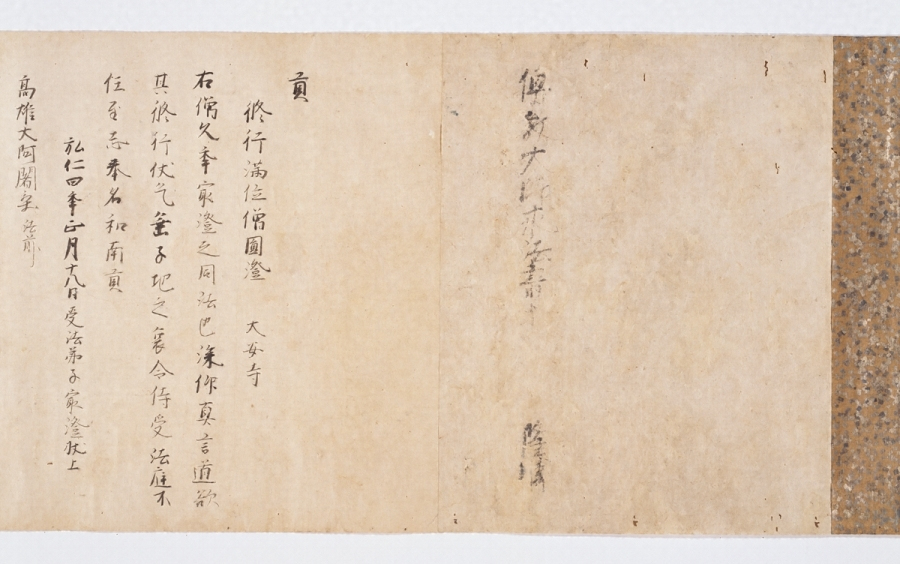 傳教大師求法書
貢
修行滿位僧圓澄　大安寺
右僧久年最澄之同法也深仰真言道欲
其修行伏乞垂子地之哀令侍受法庭不
任至志奉名和南貢
弘仁四年正月十八日受法弟子最澄狀上
高雄大阿闍梨 法前